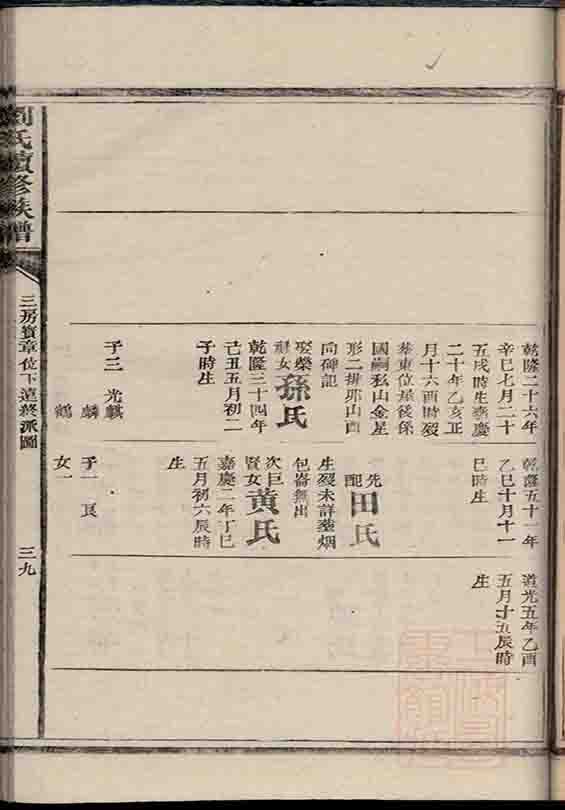 乾隆二十六年
辛巳七月二十
五戌時生嘉慶
二十年乙亥正
月十六酉時歿
葬東位屋後係
國嗣私山金星
形二排邪山酉
向碑記
娶榮
女孫氏
乾隆三十四年
己丑五月初二
子時生
子三 光麒
麟
鶴
乾隆五十一年
乙巳十月十一
巳時生
先配田氏
生歿未詳葬烟
包崙無出
次巨
賢女黄氏
嘉慶二年丁巳
五月初六辰時
生
子一 良
女一
道光五年乙酉
五月十五辰時
生
劉氏續修族譜
三房寳章位下遠終派圖
三九